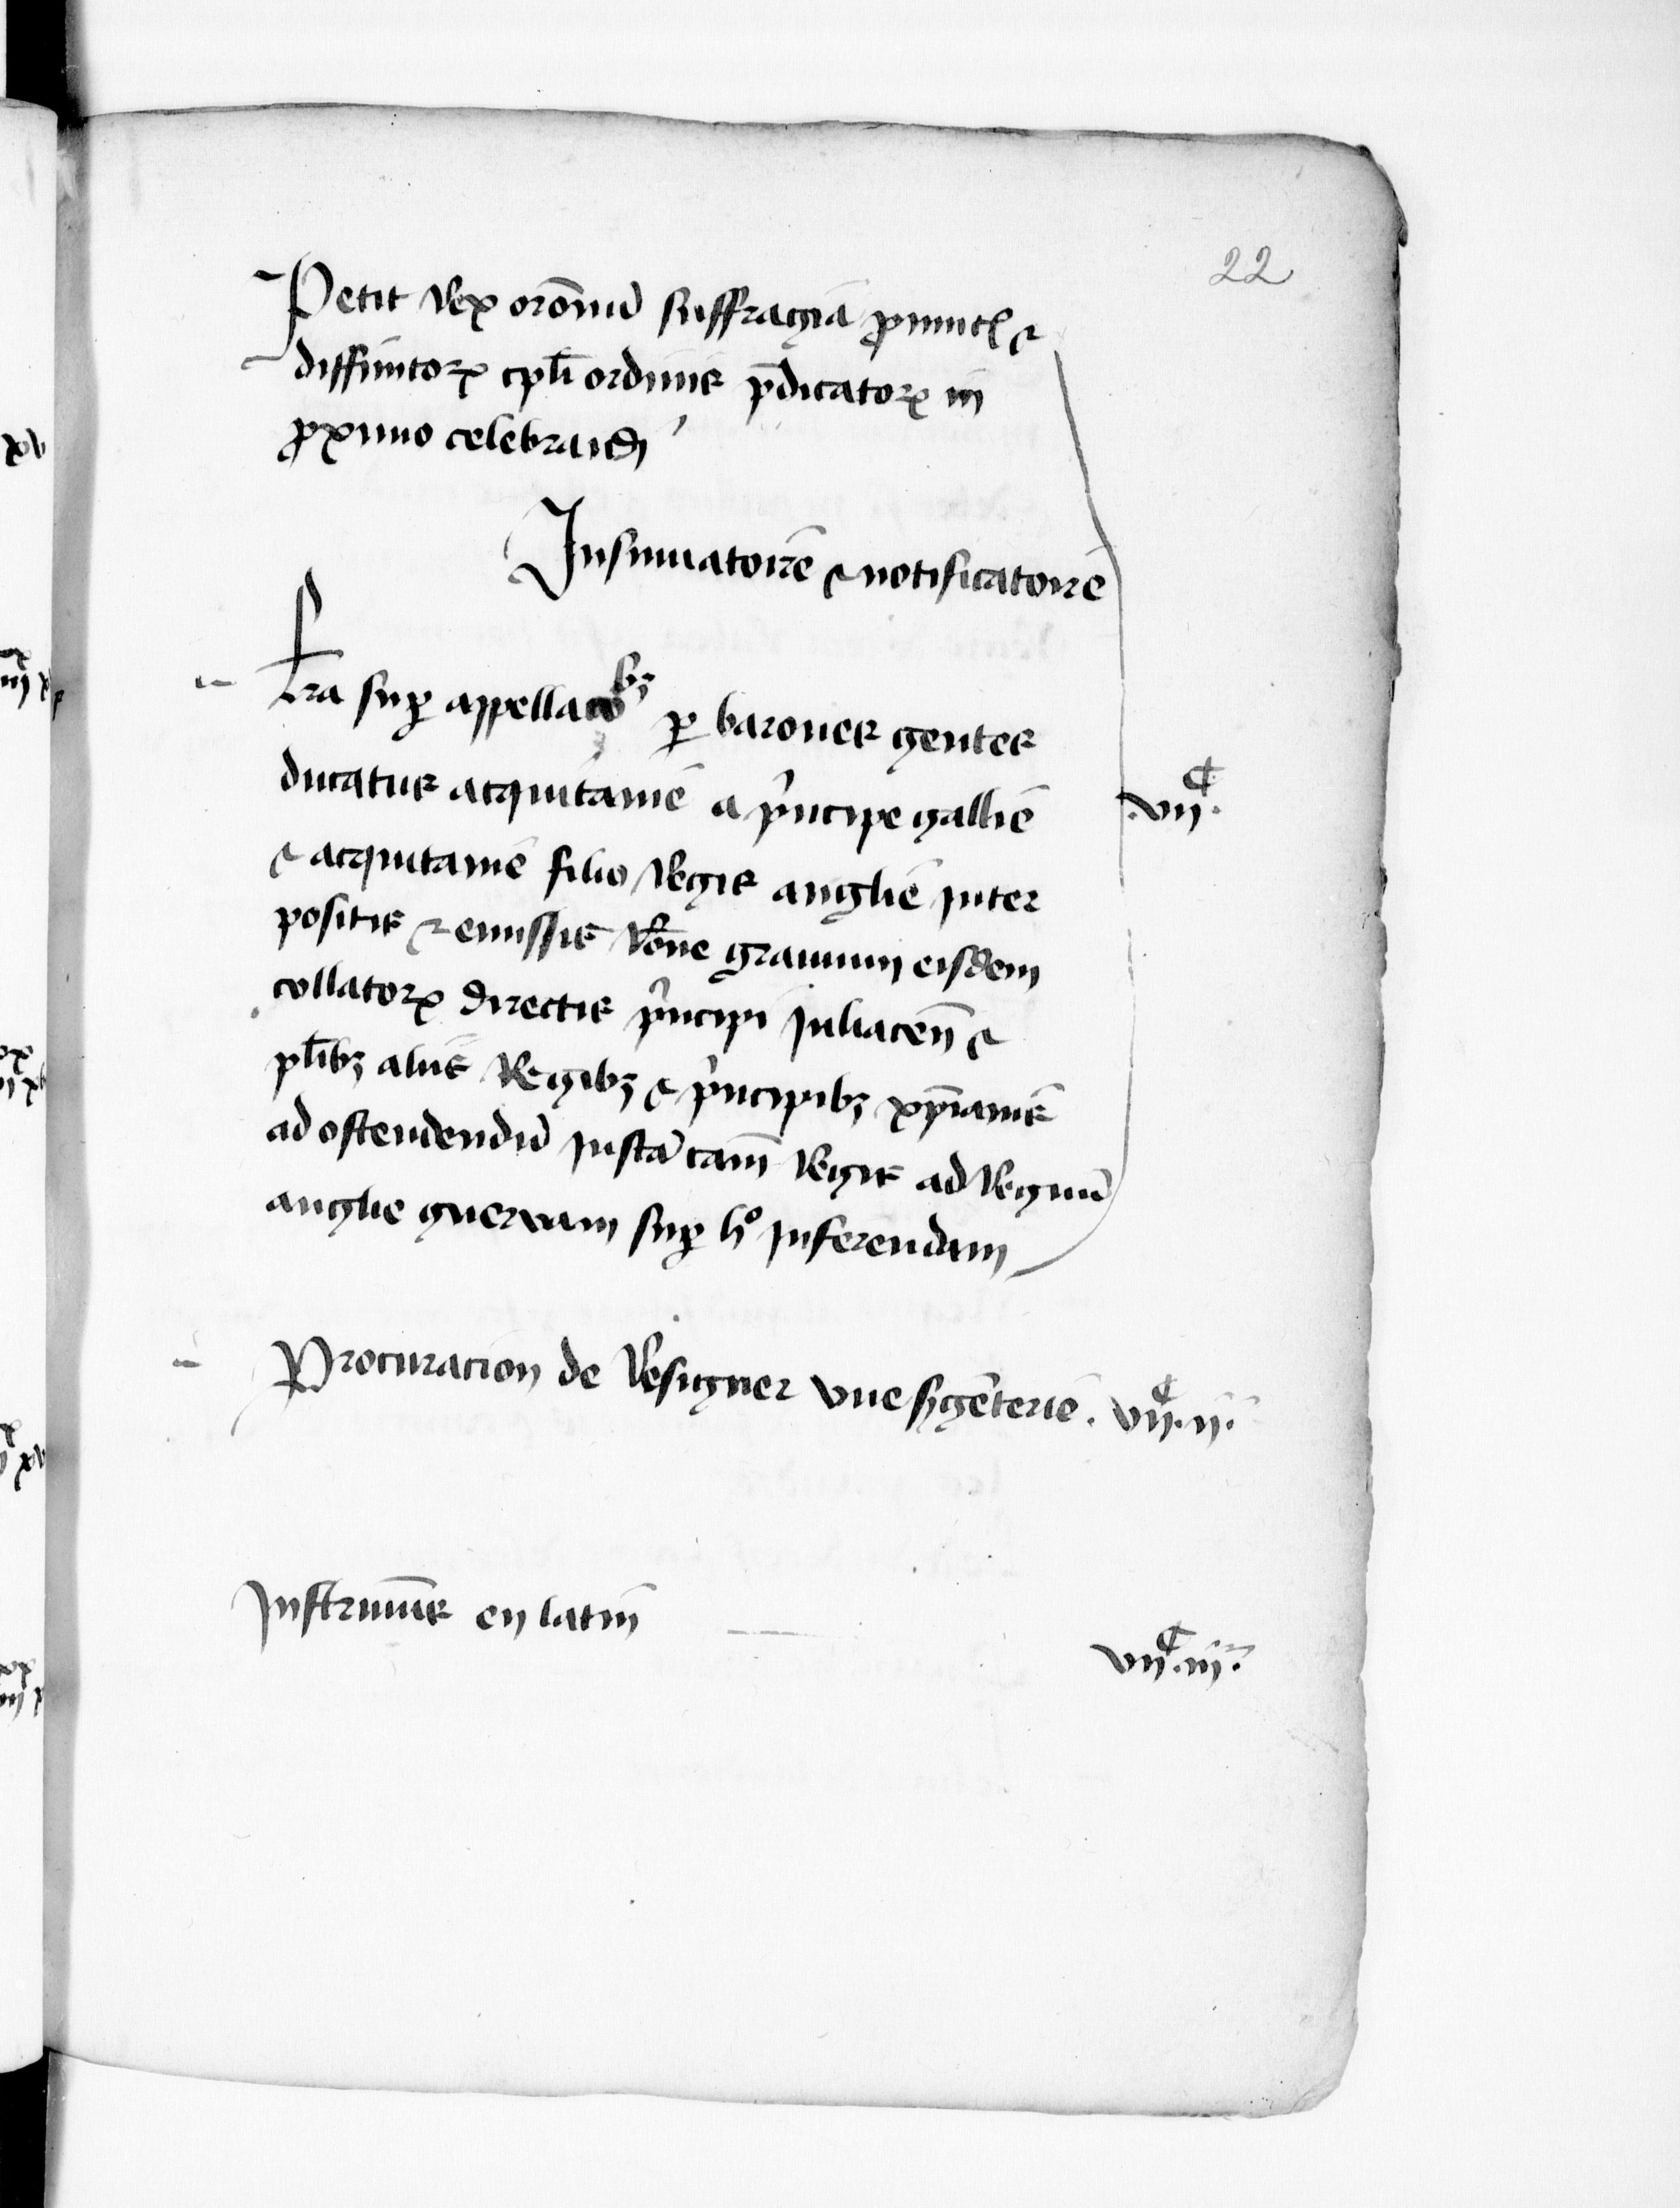 22
Petit Rex oro͞nu͞ suffragia ꝓuinc̃ &
diffinitoꝝ cpl̃i ordinis p̃dicatoꝝ in
ꝓximo celebrand̃
Insinuatoire & notificatoire
Lr̃a suꝑ appellac̃oibꝫ ꝑ barones gentes
ducatus acquitanie a pͥncipe gallie
& acquitanie filio Regis anglie inter
positis & emissis Rõne grauinũ eisdem
collatoꝝ directis pͥncipi Juliacen̄ &
pl̃ibꝫ aliis Regibꝫ & pͥncipibꝫ xp̃ianis
ad ostendendũ iustã cam̃ Regis ad Regnũ
anglie guerram suꝑ hº inferendam
.vijᶜ.
Procuracion de Resigner vne sgẽterie. vijᶜ.ij.
Instrum̃s en latin
vijᶜ.iij.